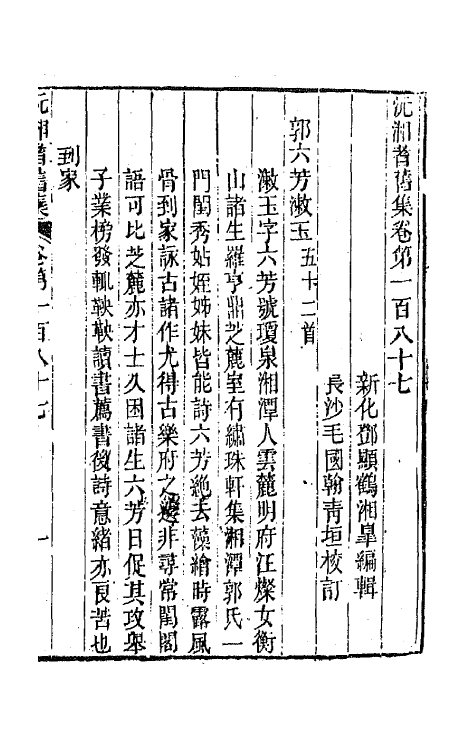 沅湘耆舊集卷第一百八十七
新化鄧顯鶴湘臯編輯
長沙毛國翰青垣校訂
郭六芳漱玉五十二首
漱玉字六芳號瓊泉湘潭人雲麓明府汪燦女衡
山諸生羅亨鼎芝麓室有繡珠軒集湘潭郭氏一
門閨秀姑姪姊妹皆能詩六芳絶去藻繪時露風
骨到家詠古諸作尤得古樂府之遺非尋常閨閣
語可比芝麓亦才士久困諸生六芳日促其攻舉
子業榜發輒鞅鞅讀書薦書後詩意緒亦良苦也
到家
沅湘耆舊集 卷第一百八十七 一